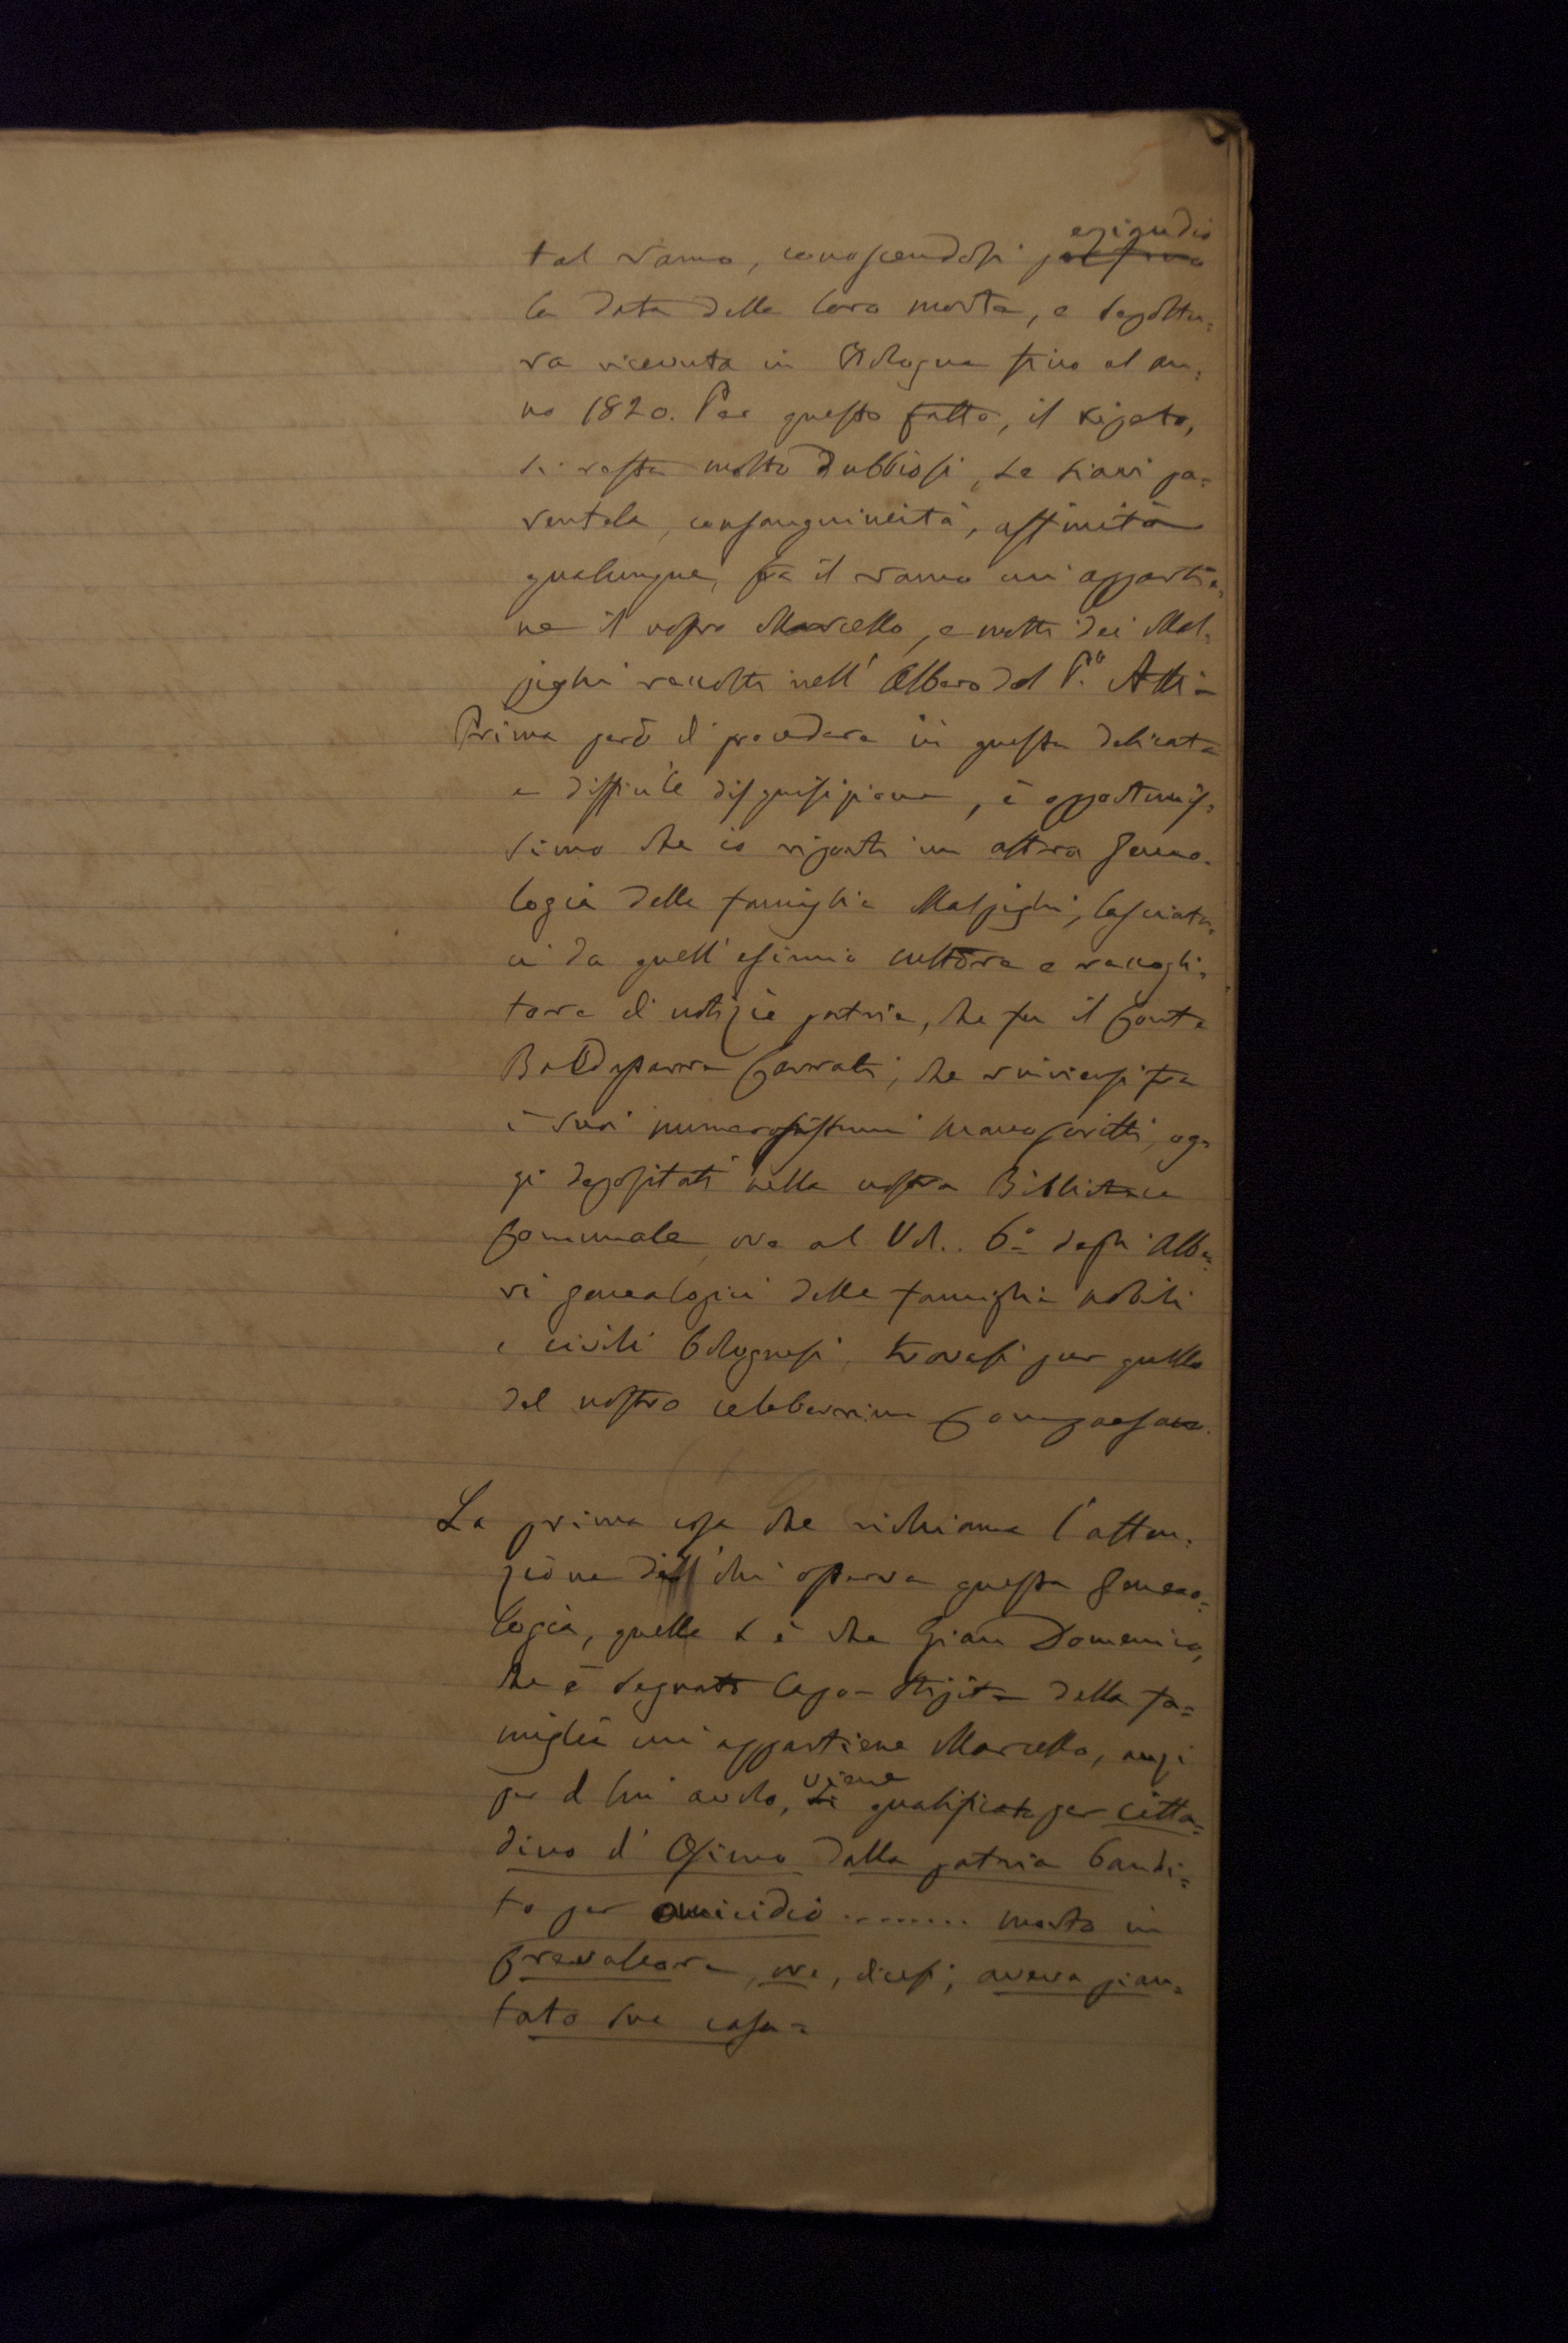 5
eziandio
tal ramo, conoscendosi perfino
la data della loro morte, e sepoltu=
ra ricevuta in Bologna fino al an=
no 1820. Per questo fatto, il ripeto,
si resta molto dubbiosi, se siavi pa=
rentela, consanguineità, affinità
qualunque, fra il ramo cui appartie=
ne il nostro Marcello, e molti dei Mal=
pighi raccolti nell' Albero del P.
Prima però di procedere in questa delicata
e difficile disquisizione, è opportunis=
simo che io riporti un altra genea=
logia della famiglia Malpighi, lasciata=
ci da quell' esimio cultore e raccogli=
tore di notizie patrie, che fu il Conte
Baldassarre Carrati, che rinviensi fra
i suoi numerosissimi manoscritti, og=
gi depositati nella nostra Biblioteca
Comunale, ove al Vol. 6.° degli Albe=
ri genealogici delle famiglie nobili
e civili bolognesi, trovasi pur quello
del nostro celeberrimo Compaesano.
La prima cosa che richiama l'atten=
zione di chi osserva questa genea=
logia, quella si è che Gian Domenico,
che è segnato Capo-stipite della fa=
miglia cui appartiene Marcello, anzi
per di lui avolo, viene
si qualificato per citta=
dino d' Osimo dalla patria bandi=
to per omicidio ........ morto in
Crevalcore, ove, dicesi, aveva pian=
tato sua casa=